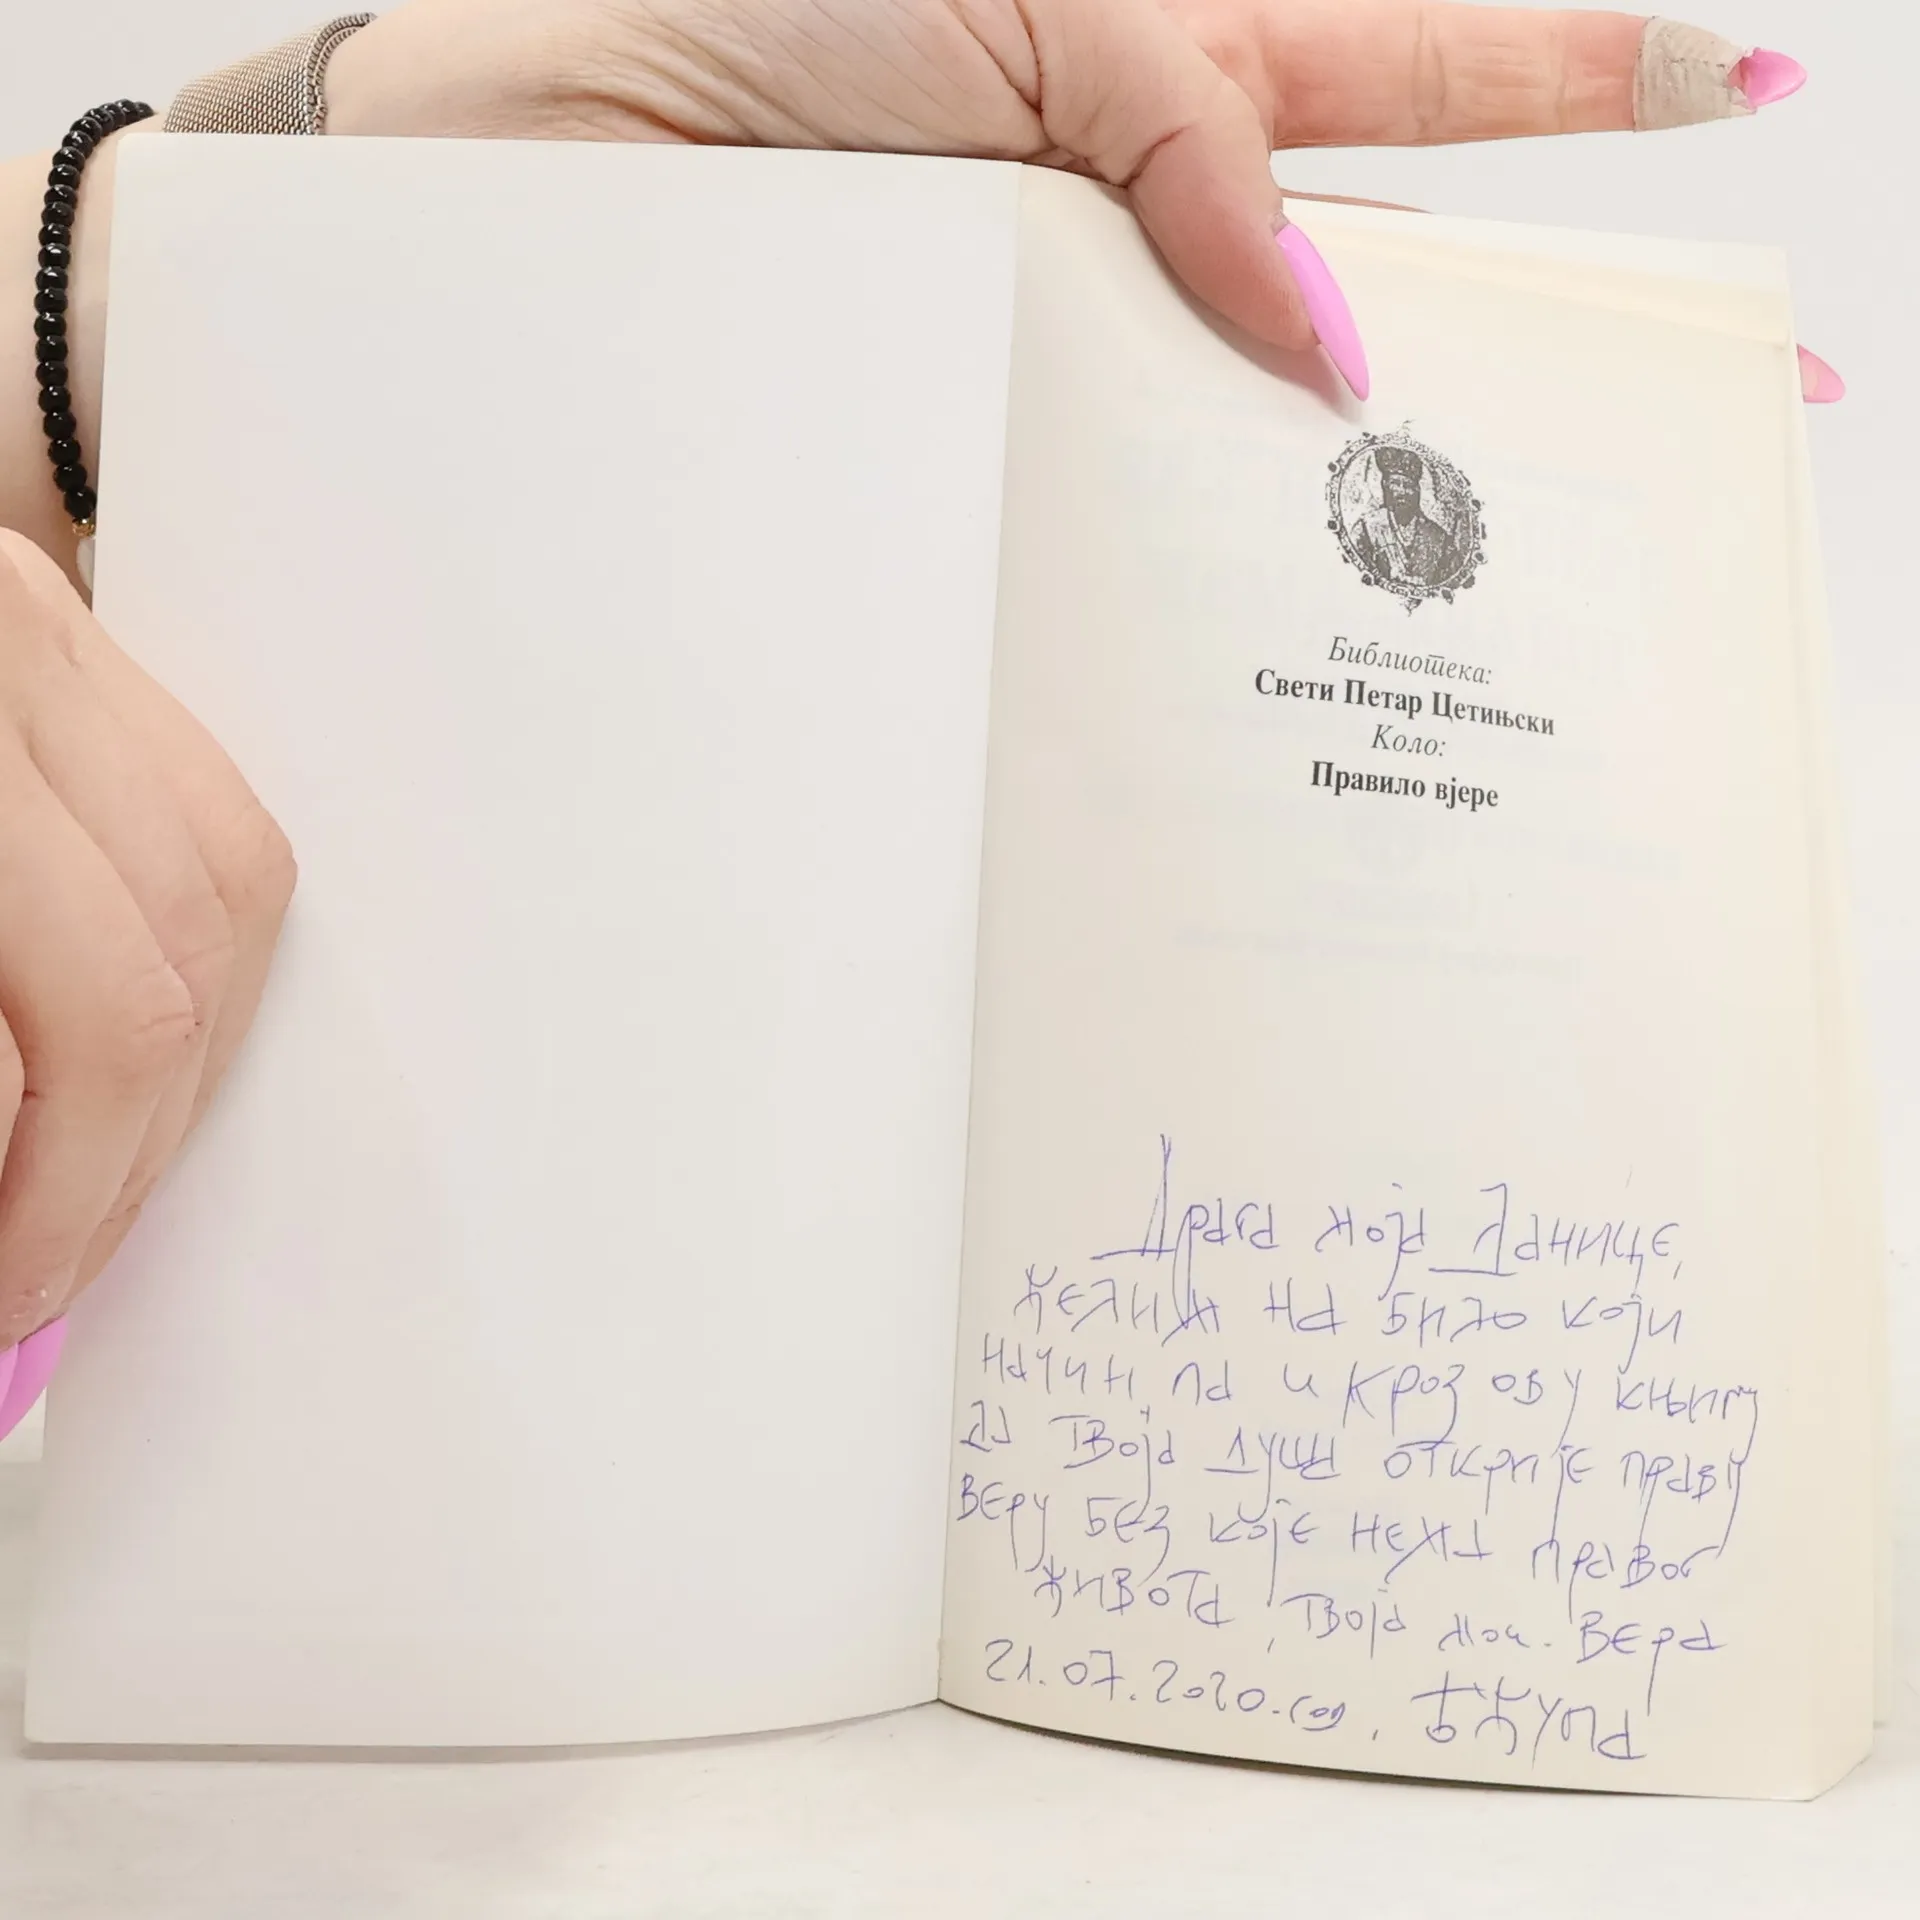 Библиотека:
Свети Петар Цетињски
Коло:
Правило вјере
Драга моја Данице,
желим на било који
начин, па и кроз ову књигу
да Твоја душа открије праву
веру без које нема правог
живота, Твоја мон. Вера
21.07.2020. год.